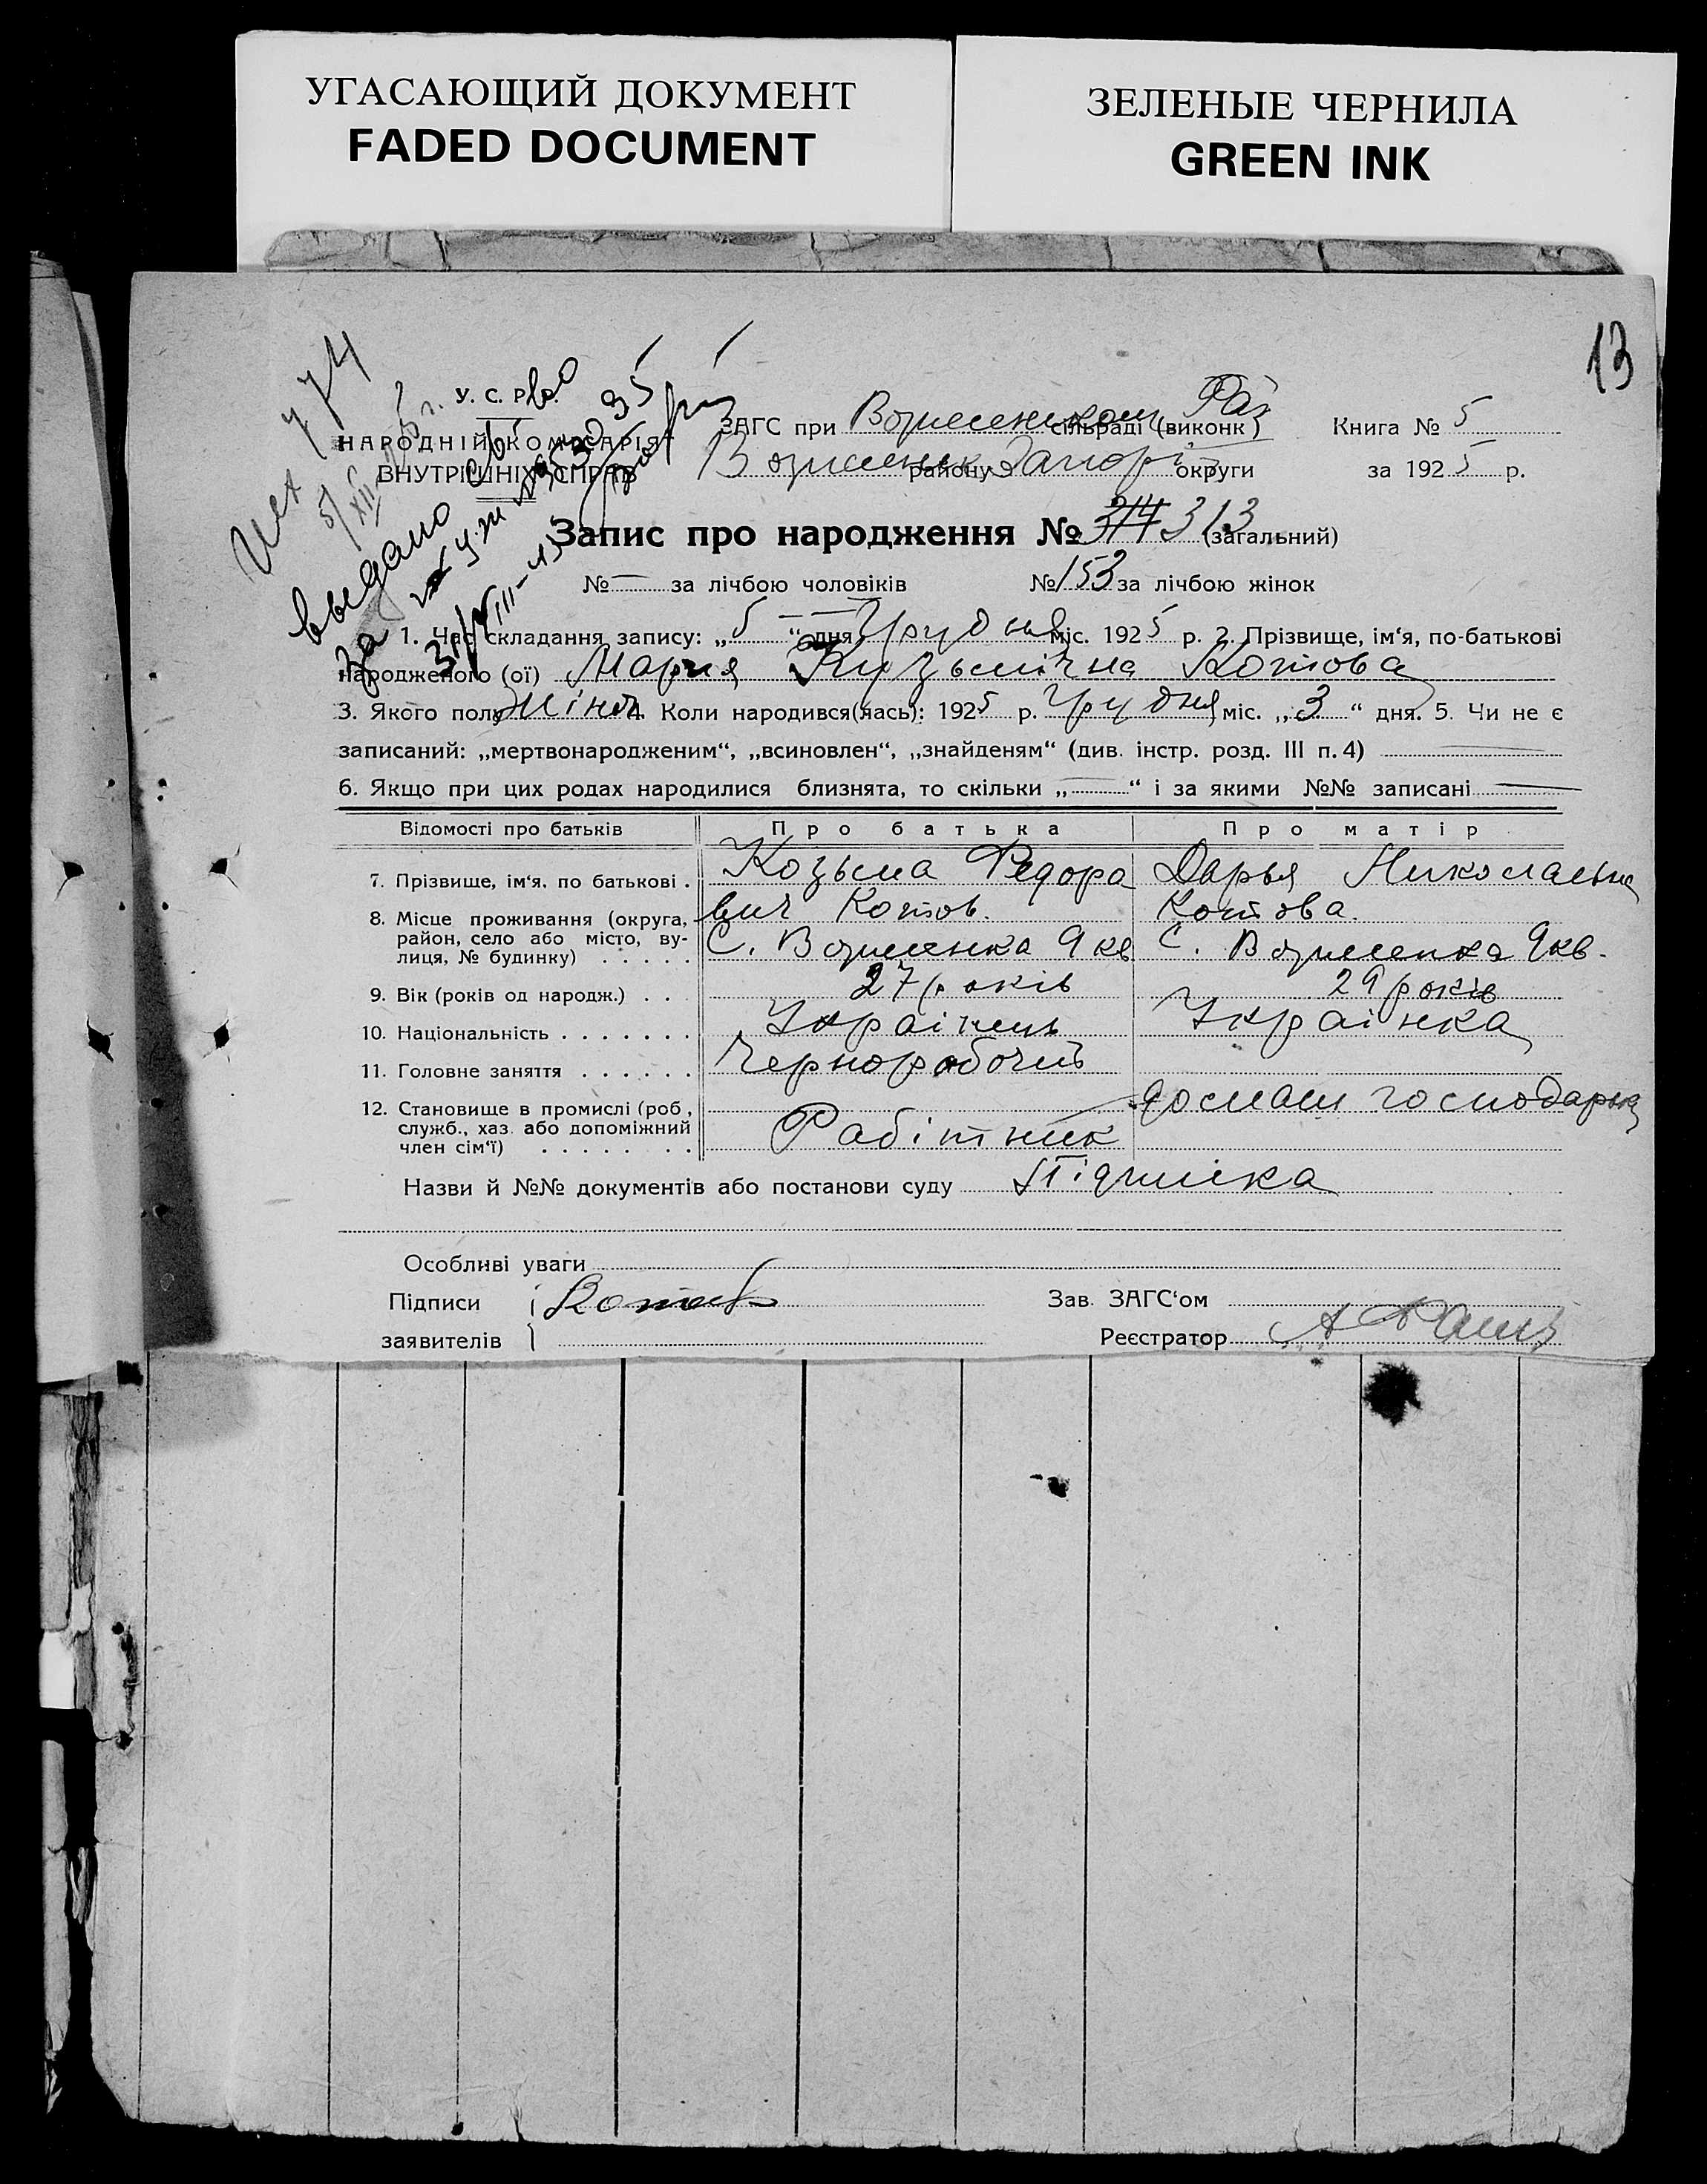 УГАСАЮЩИЙ ДОКУМЕНТ
FADED DOCUMENT
ЗЕЛЕНЫЕ ЧЕРНИЛА
GREEN INK
13
У. С. Р. Р.
НАРОДНІЙ КОМІСАРІЯТ
ВНУТРІШНІХ СПРАВ
выдано св-во
ЗАГС при Вознесенском Рай сільраді (виконк) Книга № 5
Вознесенськ району Запоріз округи за 1925 р.
Запис про народження № 314 313 (загальний)
№ — за лічбою чоловіків № 153 за лічбою жінок
1. Час складання запису: „5“ дня Грудня міс. 1925 р. 2. Прізвище, ім‘я, по-батькові
народженого (ої) Мария Кузьмічна Котова
3. Якого полу Жіноч 4. Коли народився(лась): 1925 р. Грудня міс. „3“ дня. 5. Чи не є
записаний: „мертвонародженим“, „всиновлен“, „знайденям“ (див. інстр. розд. III п. 4) —
6. Якщо при цих родах народилися близнята, то скільки „—“ і за якими №№ записані —
Відомості про батьків Про батька Про матір
7. Прізвище, ім‘я, по батькові . Козьма Федора Дарья Николаевна
вич Котов. Котова.
8. Місце проживання (округа, район, село або місто, вулиця, № будинку) . . . . . С. Вознесенка 9 кв С. Вознесенка 9 кв.
9. Вік (років од народж.) . . . 27 років 29 років
10. Національність . . . . . . . Українець Українка
11. Головне заняття . . . . . . Чернорабочий
12. Становище в промислі (роб., служб., хаз. або допоміжний член сім‘ї) . . . . . . . Рабітник домаш господарка
Назви й №№ документів або постанови суду Підписка
Особливі уваги
Підписи Котов Зав. ЗАГС‘ом
заявителів Реєстратор